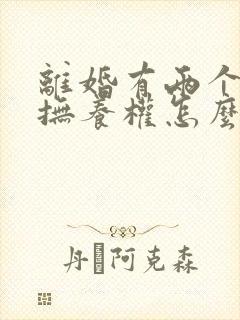 離婚有兩个
撫養權怎麼
丹 阿克森